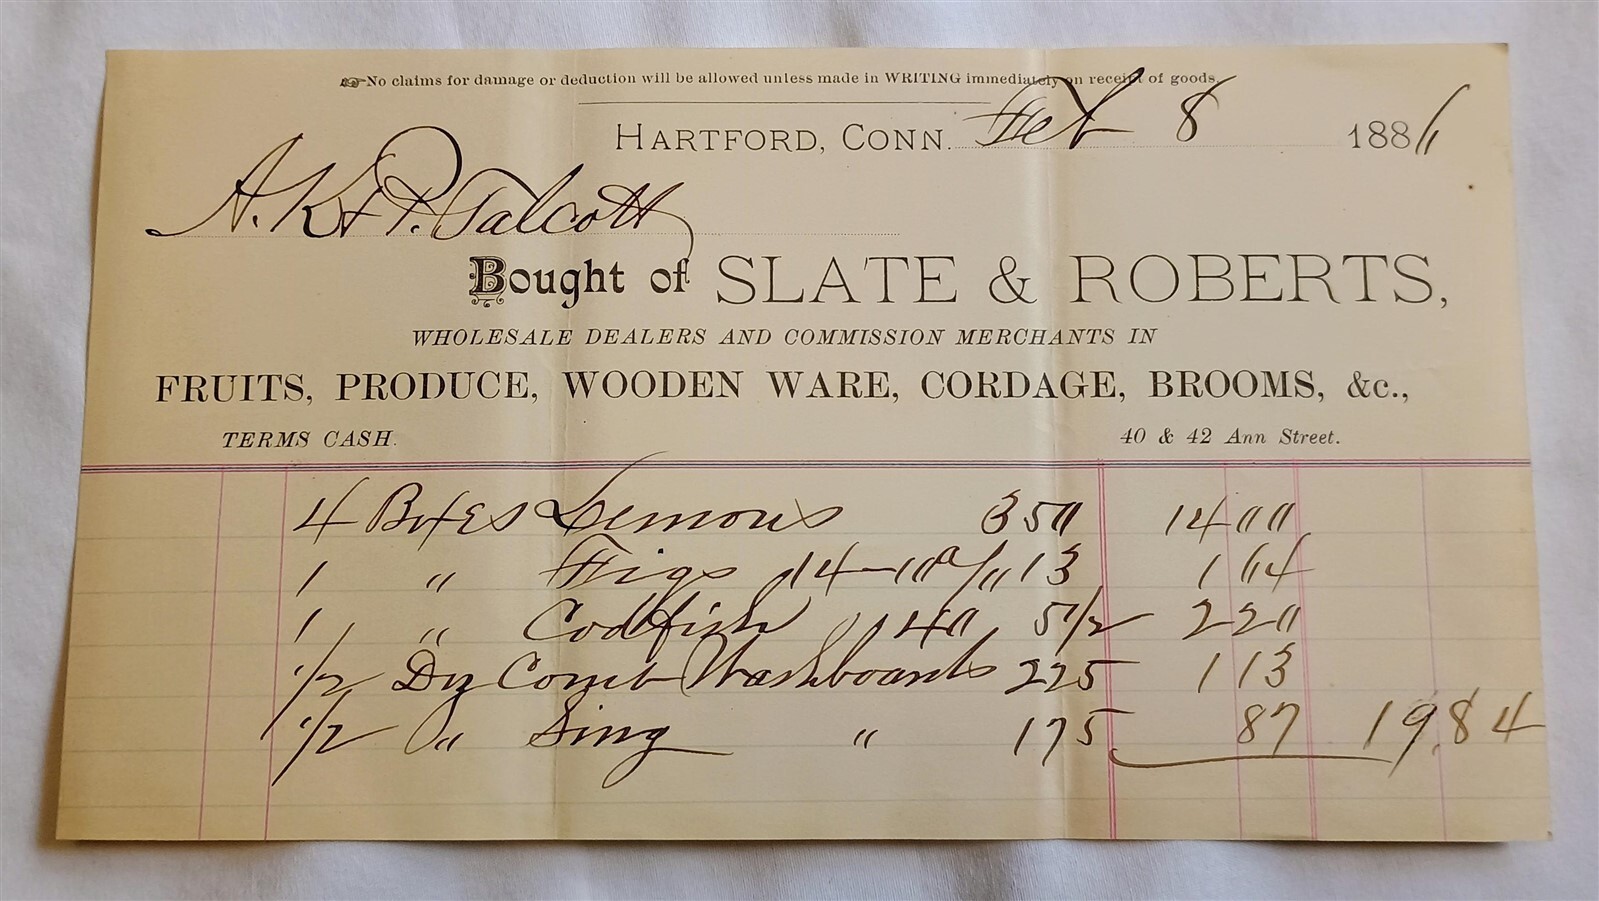 ☞No claims for damage or deduction will be allowed unless made in WRITING immediately on receipt of goods.
HARTFORD, CONN. Feb 8 1886
A. K & P. Talcott
Bought of SLATE & ROBERTS,
WHOLESALE DEALERS AND COMMISSION MERCHANTS IN
FRUITS, PRODUCE, WOODEN WARE, CORDAGE, BROOMS, &c.,
TERMS CASH. 40 & 42 Ann Street.
4 Boxes Lemons 3 50 14 00
1 " Figs 14 13 1 64
1 " Codfish 40 5 1/2 2 20
1/2 Dz Comb Washboards 225 1 13
1/2 " Sing " 175 87 19.84